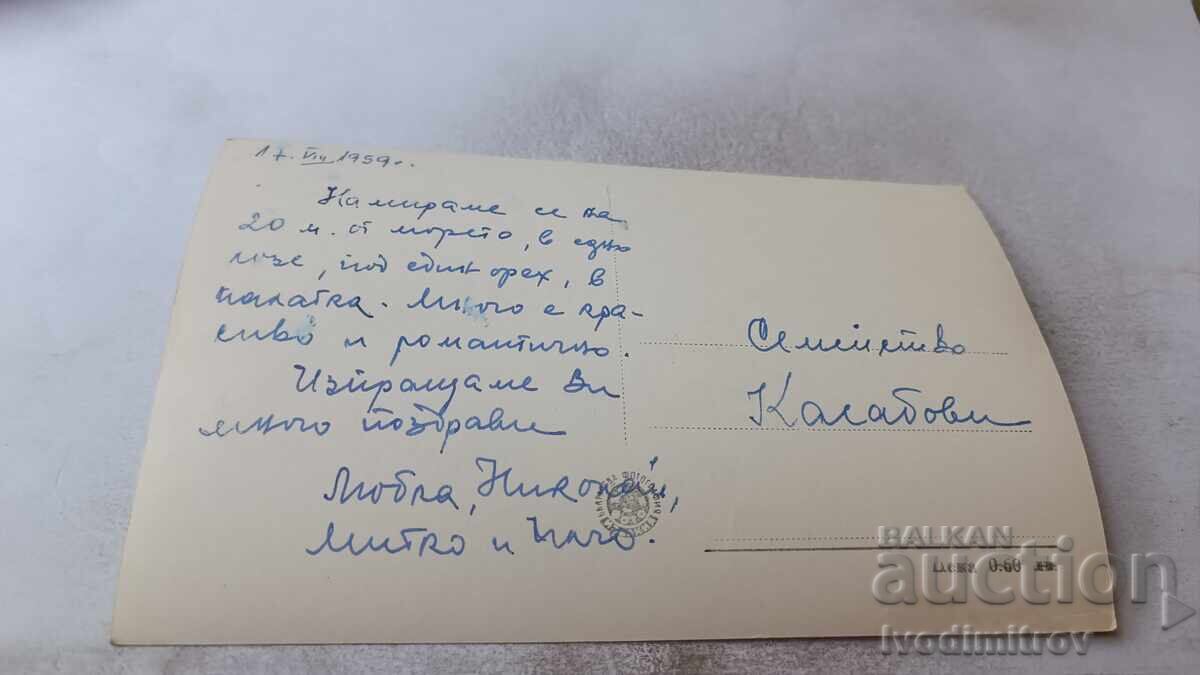 17. VIII 1959 г.
Намираме се на
20 м. от морето, в едно
лозе, под един орех, в
палатка. Много е кра-
сиво и романтично.
Изпращаме Ви
много поздрави
Любка, Николай,
Митко и
Семейство
Калабови
Цена 0·60 лв.
BALKAN
auction
Ivodimitrov